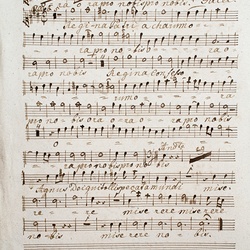 ra o ra pro nobis pro nobis.
ra pro nobis o ra o
ra pro nobis Regina Confesso
rum o ra
pro no bis ora o ra o ra pro no
bis pro nobis pro nobis
Agnus Dei qui tollis peccata mundi mise
re re mise rere mise rere
no bis mise rere no bis.